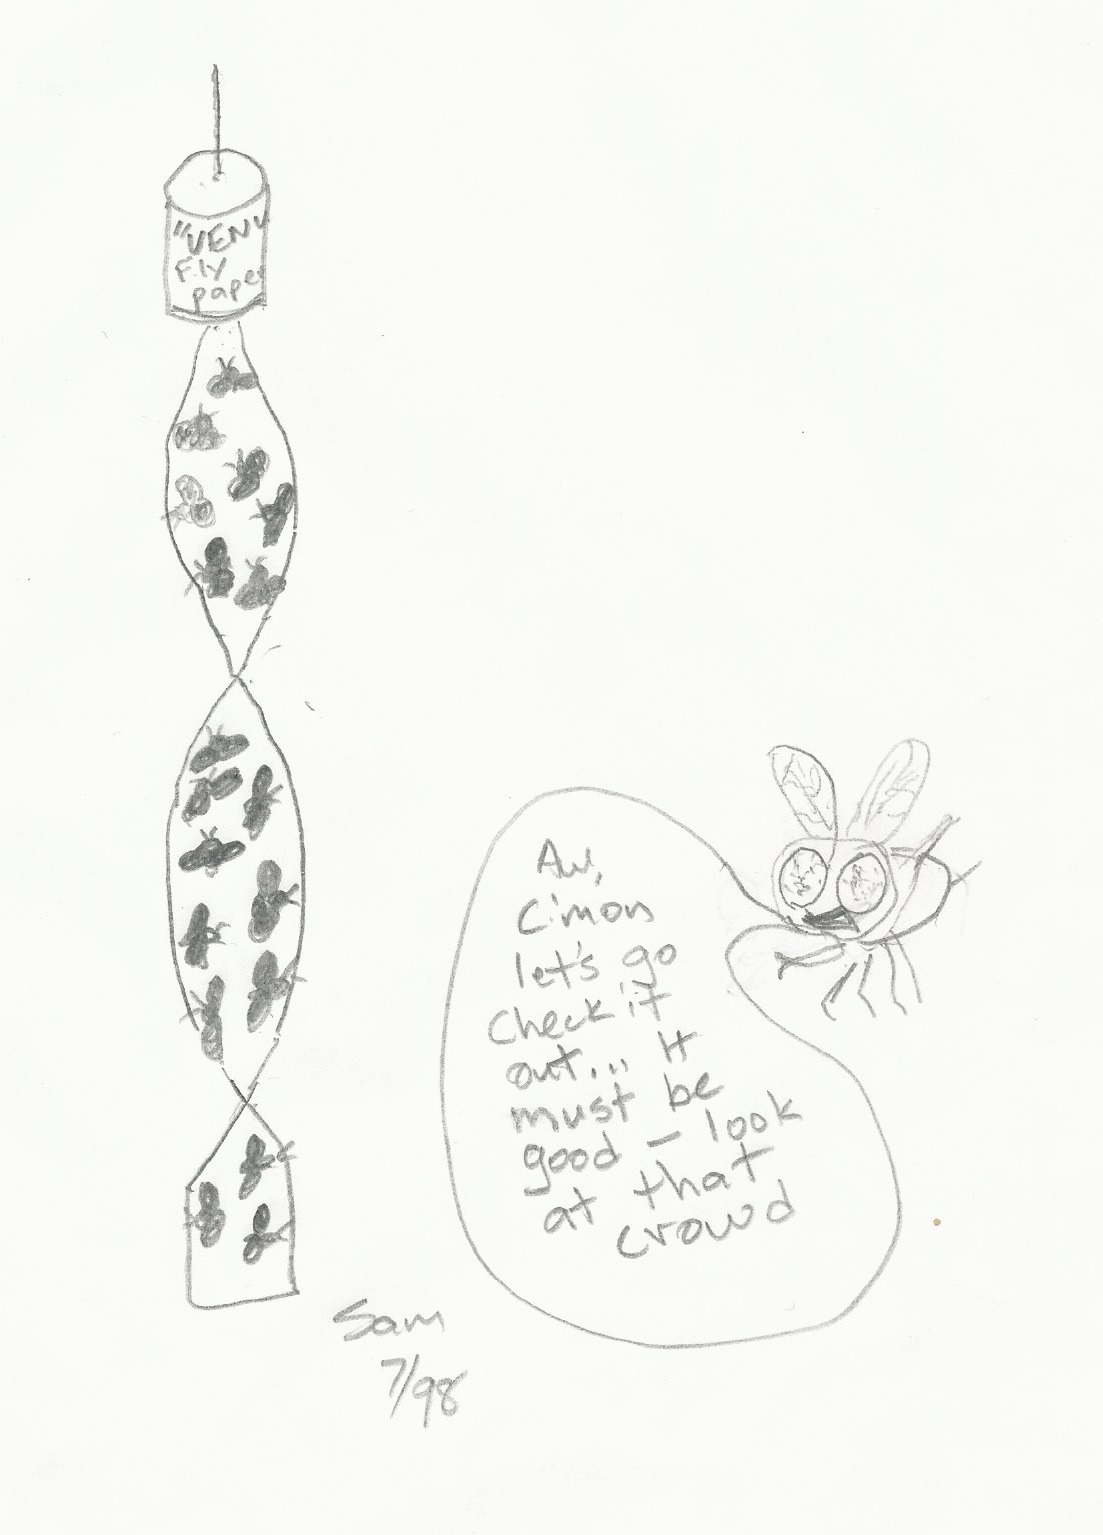 "VENU
Fly
paper
Aw,
c'mon
let's go
check it
out... It
must be
good - look
at that
crowd
Sam
7/98